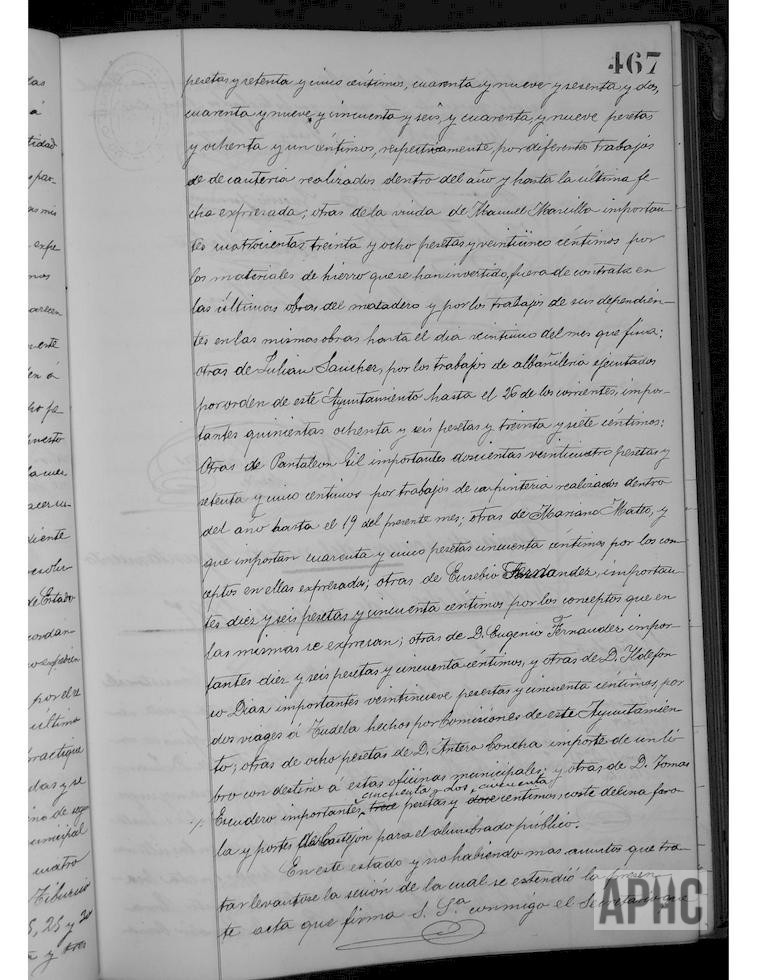 467
pesetas y setenta y cinco céntimos, cuarenta y nueve y sesenta y dos,
cuarenta y nueve, y cincuenta y seis, y cuarenta y nueve pesetas
y ochenta y un céntimos, respectivamente, por diferentes trabajos
de de cantería realizados dentro del año y hasta la última fe
cha expresada; otras de la viuda de Manuel Marsilla importan
tes cuatrocientas treinta y ocho pesetas y veintiünco céntimos por
los materiales de hierro que se han invertido, fuera de contrata en
las últimas obras del matadero y por los trabajos de sus dependien-
tes en las mismas obras hasta el dia veintiuno del mes que fina;
otras de Julian Sanchez, por los trabajos de albañileria ejecutados
por orden de este Ayuntamiento hasta el 26 de los corrientes, impor-
tantes quinientas ochenta y seis pesetas y treinta y siete céntimos;
Otras de Pantaleon Gil importantes doscientas veinticuatro pesetas y
setenta y cinco centimos por trabajos de carpinteria realizados dentro
del año hasta el 19 del presente mes; otras de Mariano Mateo, y
que importan cuarenta y cinco pesetas cincuenta céntimos por los con
ceptos en ellas expresados; otras de Eusebio Fernandez, importan
tes diez y seis pesetas y cincuenta céntimos por los conceptos que en
las mismas se expresan; otras de D. Eugenio Fernandez impor-
tantes diez y seis pesetas y cincuenta céntimos, y otras de D. Ildefon
so Diaz importantes veintinueve pesetas y cincuenta céntimos, por
dos viages á Tudela hechos por Comisiones de este Ayuntamien
to; otras de ocho pesetas de D. Antero Concha importe de un li
bro con destino á estas oficinas municipales; y otras de D. Tomas
cincuenta y dos cuarenta
Escudero importantes trece pesetas y doce centimos, coste de una faro
la y portes de Castejon para el alumbrado público.
En este estado y no habiendo mas asuntos que tra-
tar levantose la sesión de la cual se extendió la presen-
te acta que firma S. Sª conmigo el Secretario que
APHC